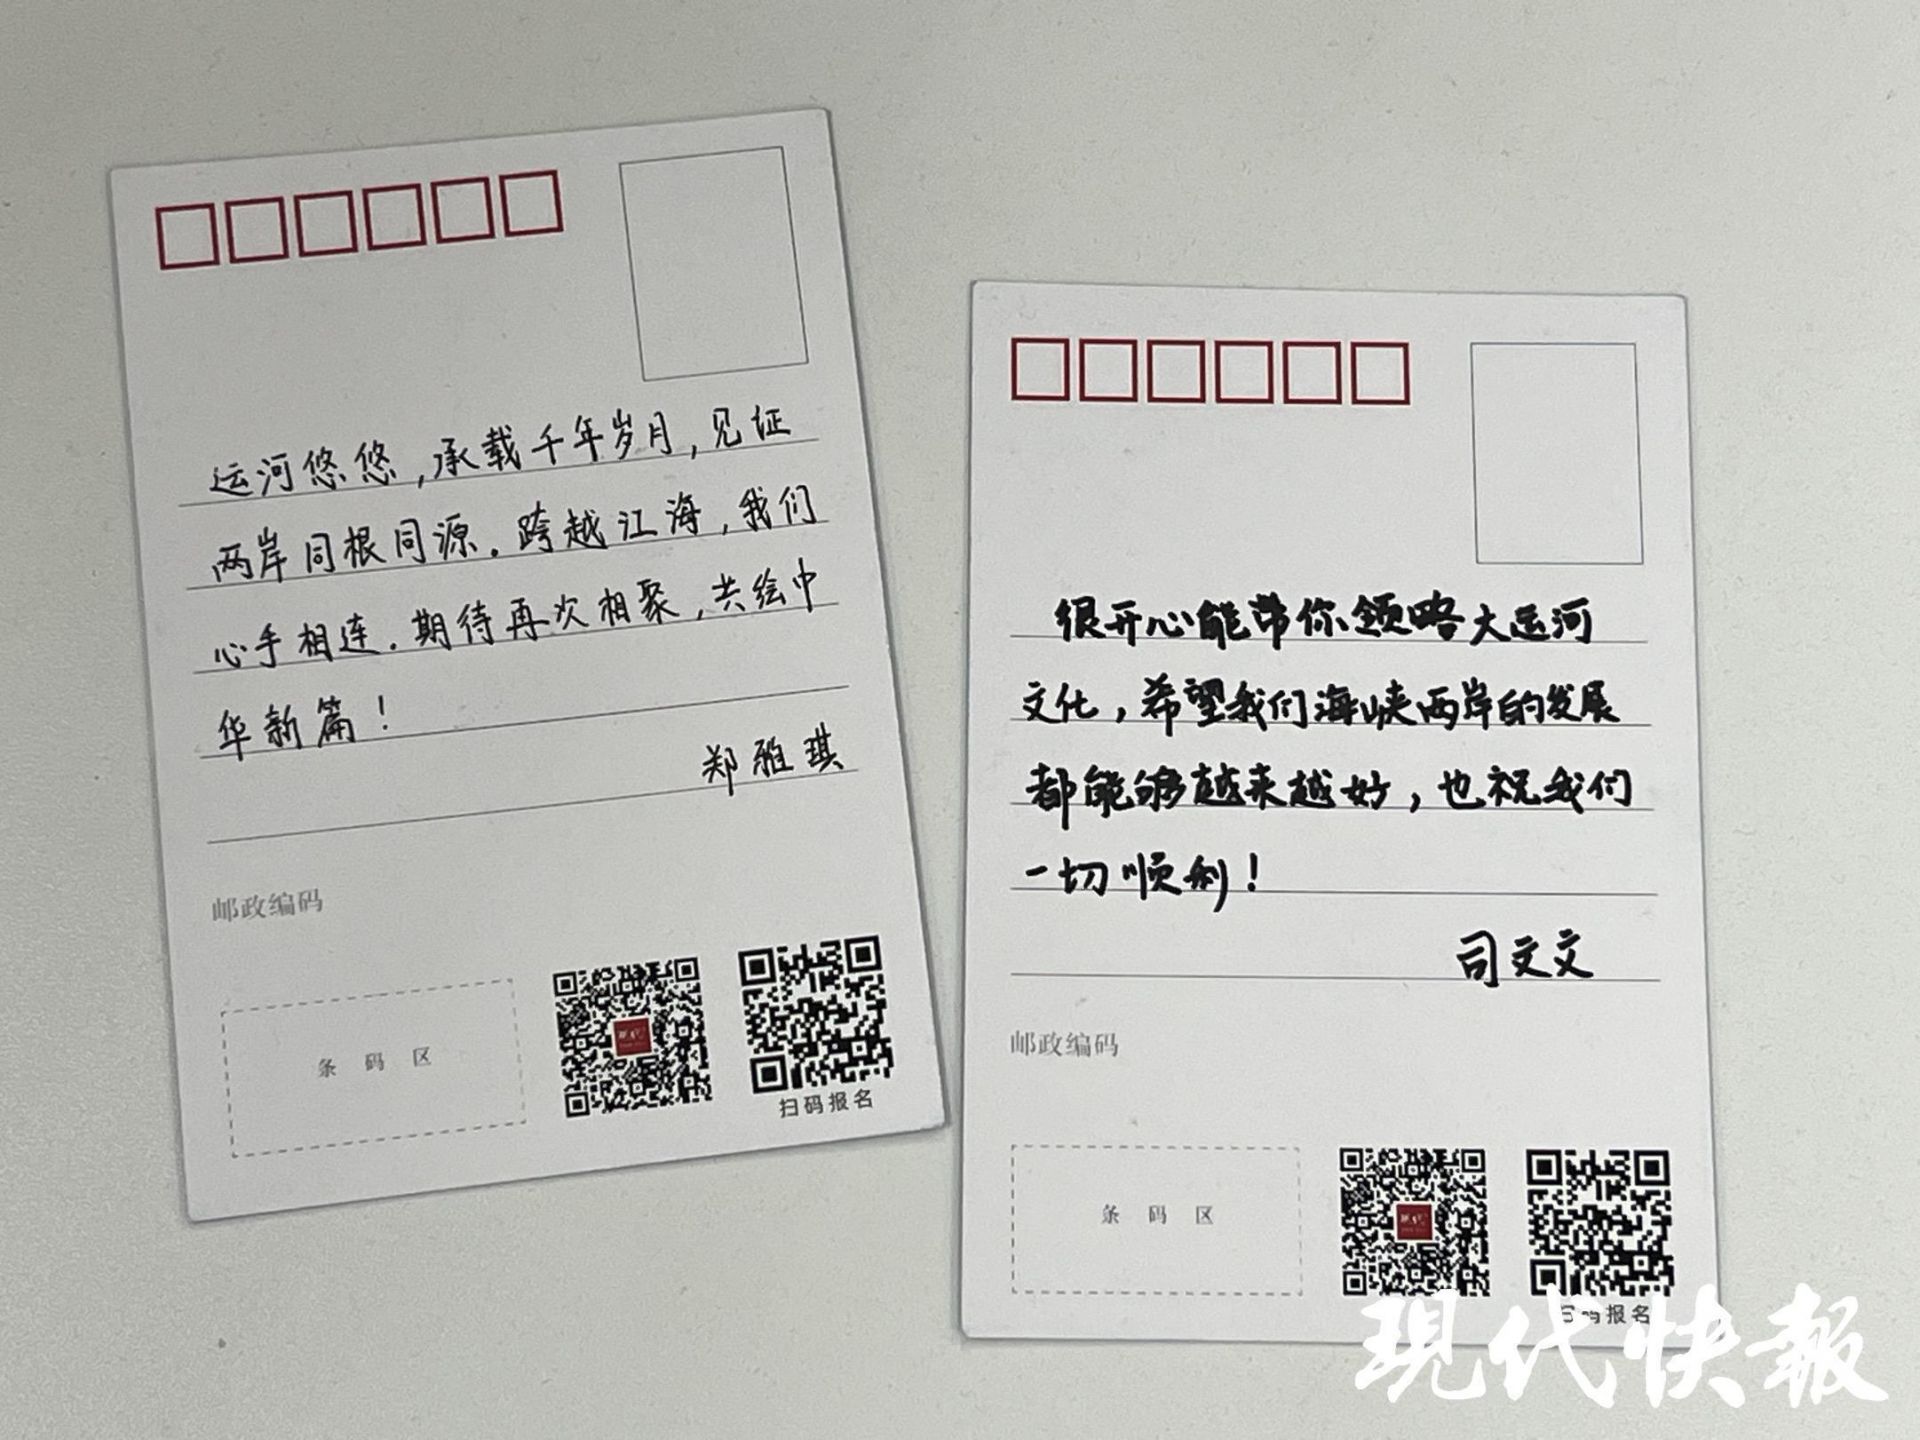 运河悠悠,承载千年岁月,见证
两岸同根同源.跨越江海,我们
心手相连.期待再次相聚,共绘中
华新篇!
郑雅琪
邮政编码
条码区
扫码报名
很开心能带你领略大运河
文化,希望我们海峡两岸的发展
都能够越来越好,也祝我们
一切顺利!
司文文
邮政编码
条码区
扫码报名
現代快報